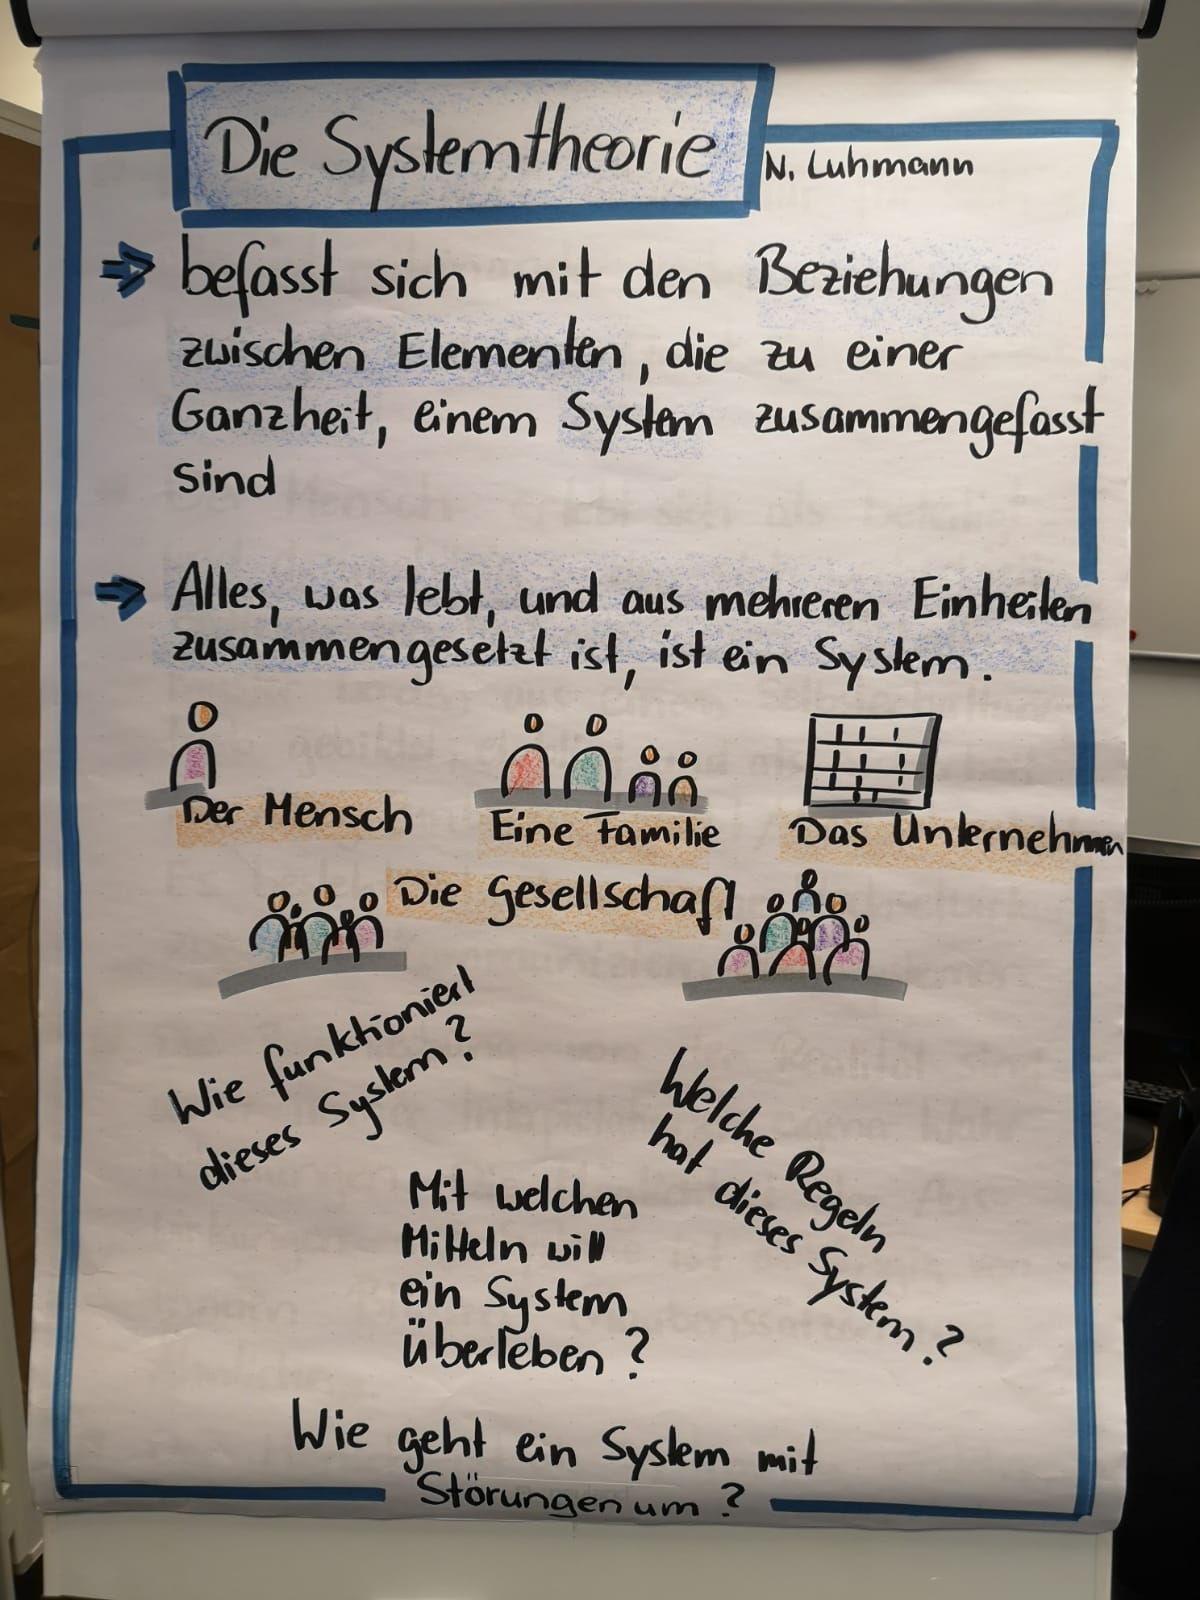 Die Systemtheorie
N. Luhmann
⇒ befasst sich mit den Beziehungen
zwischen Elementen, die zu einer
Ganzheit, einem System zusammengefasst
sind
⇒ Alles, was lebt, und aus mehreren Einheiten
zusammengesetzt ist, ist ein System.
Der Mensch
Eine Familie
Das Unternehmen
Die Gesellschaft
Wie funktioniert
dieses System?
Welche Regeln
hat dieses System?
Mit welchen
Mitteln will
ein System
überleben?
Wie geht ein System mit
Störungen um?